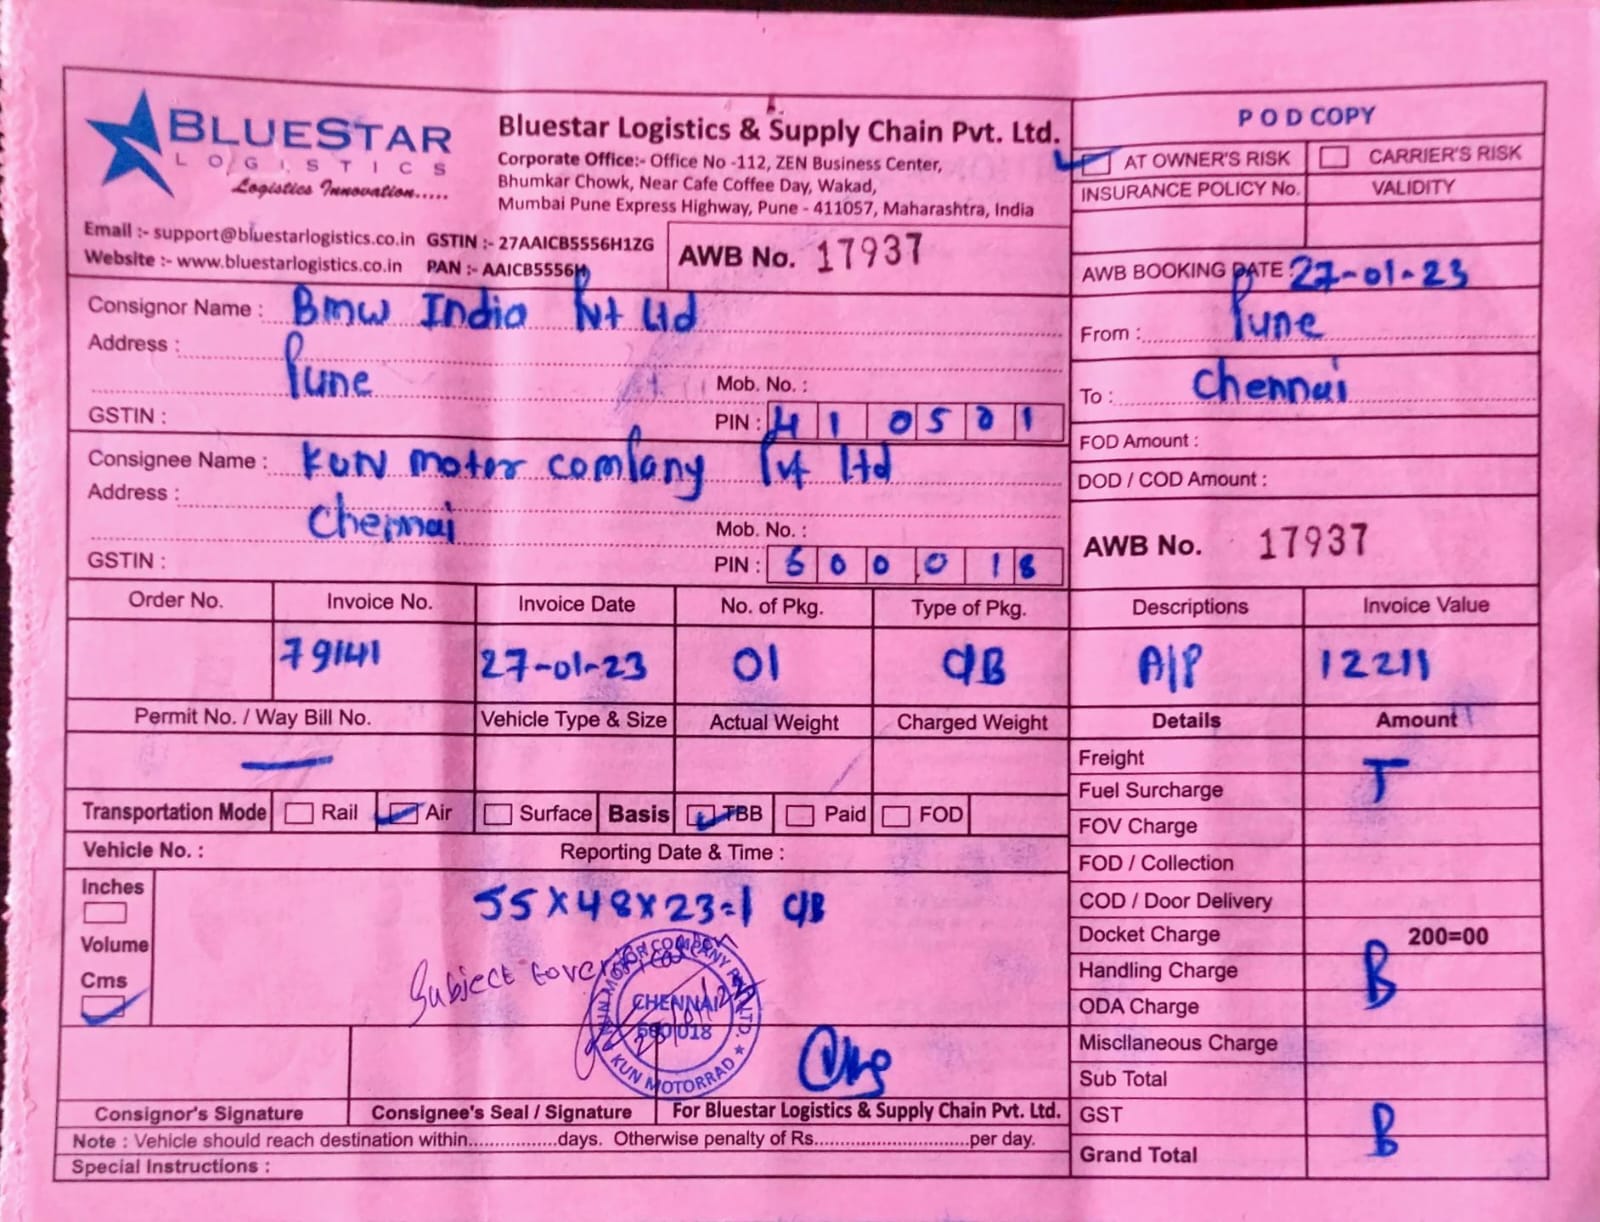 BLUESTAR
LOGISTICS
Logistics Innovation.....
Bluestar Logistics & Supply Chain Pvt. Ltd.
Corporate Office:- Office No -112, ZEN Business Center,
Bhumkar Chowk, Near Cafe Coffee Day, Wakad,
Mumbai Pune Express Highway, Pune - 411057, Maharashtra, India
Email :- support@bluestarlogistics.co.in GSTIN :- 27AAICB5556H1ZG
Website :- www.bluestarlogistics.co.in PAN :- AAICB5556H
AWB No. 17937
POD COPY
AT OWNER'S RISK CARRIER'S RISK
INSURANCE POLICY No. VALIDITY
AWB BOOKING DATE : 27-01-23
From : Pune
To : Chennai
FOD Amount :
DOD / COD Amount :
AWB No. 17937
Consignor Name : BMW India Pvt Ltd
Address :
Pune Mob. No. :
GSTIN : PIN : 410501
Consignee Name : KUN Motor Company Pvt Ltd
Address :
Chennai Mob. No. :
GSTIN : PIN : 600018
Order No. Invoice No. Invoice Date No. of Pkg. Type of Pkg. Descriptions Invoice Value
79141 27-01-23 01 C/B A/P 12211
Permit No. / Way Bill No. Vehicle Type & Size Actual Weight Charged Weight
Transportation Mode Rail Air Surface Basis TBB Paid FOD
Vehicle No. : Reporting Date & Time :
Inches
Volume
Cms
55X48X23=1 C/B
Subject
KUN MOTOR COMPANY PVT. LTD.
CHENNAI
600 018
KUN MOTORRAD
Consignor's Signature Consignee's Seal / Signature For Bluestar Logistics & Supply Chain Pvt. Ltd.
Note : Vehicle should reach destination within................days. Otherwise penalty of Rs............................per day.
Special Instructions :
Details Amount
Freight
T
Fuel Surcharge
FOV Charge
FOD / Collection
COD / Door Delivery
Docket Charge 200=00
Handling Charge B
ODA Charge
Miscllaneous Charge
Sub Total
GST B
Grand Total